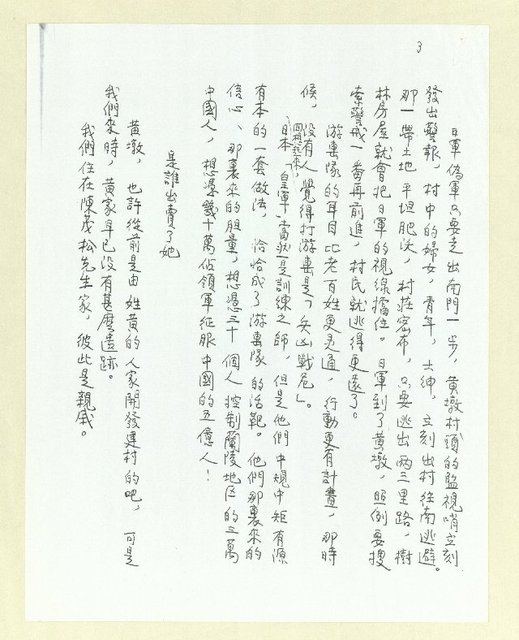 3
日軍偽軍只要走出南門一步,黃墩村頭的監視哨立刻
發出警報,村中的婦女,青年,士紳,立刻出村往南逃避。
那一帶土地平坦肥沃,村莊密布,只要逃出兩三里路,樹
林房屋就會把日軍的視線擋住。日軍到了黃墩,照例要搜
索警戒一番再前進,村民就逃得更遠了。
游擊隊的耳目比老百姓更灵通,行動更有計畫,那時
候,没有人覺得打游擊是「兵凶戰危」。
回想起來,日本「皇軍」當然是訓練之師,但是他們中規中矩有源
有本的一套做法,恰恰成了游擊隊的活靶。他們那裏來的
信心、那裏來的胆量,想憑三十個人控制蘭陵地区的三萬
中國人,想憑幾十萬佔領軍征服中國的五億人!
是誰出賣了她
黃墩,也許從前是由姓黃的人家開發建村的吧,可是
我們來時,黃家早已没有甚麼遺跡。
我們住在陳茂松先生家,彼此是親戚。